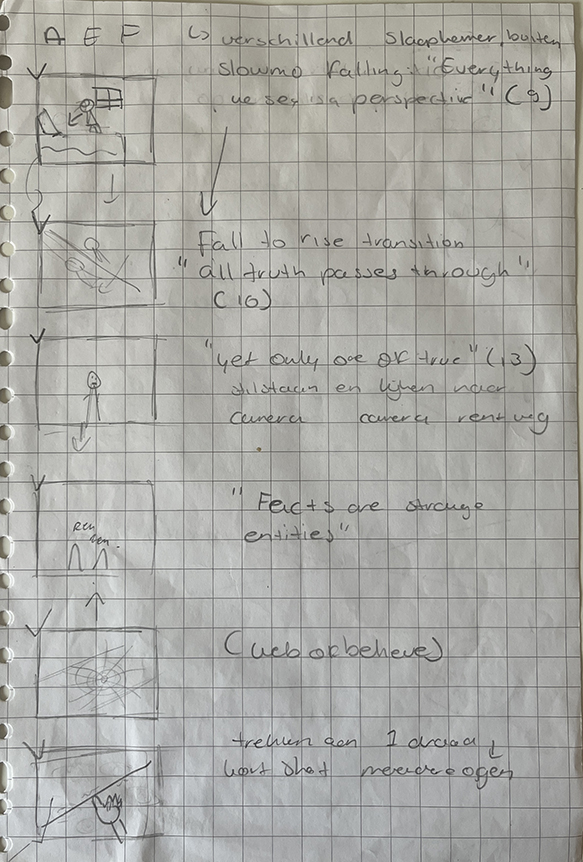 A E F ↳ verschillend Slaapkamer, buiten
slowmo Falling: "Everything
we see is a perspective" (9)
Fall to rise transition
"all truth passes through"
(16)
"yet only one of true" (13)
stilstaan en kijken naar
camera camera rent weg
"Facts are strange
entities"
Ren
(web of believe)
trekken aan 1 draad
kort shot meerdere ogen